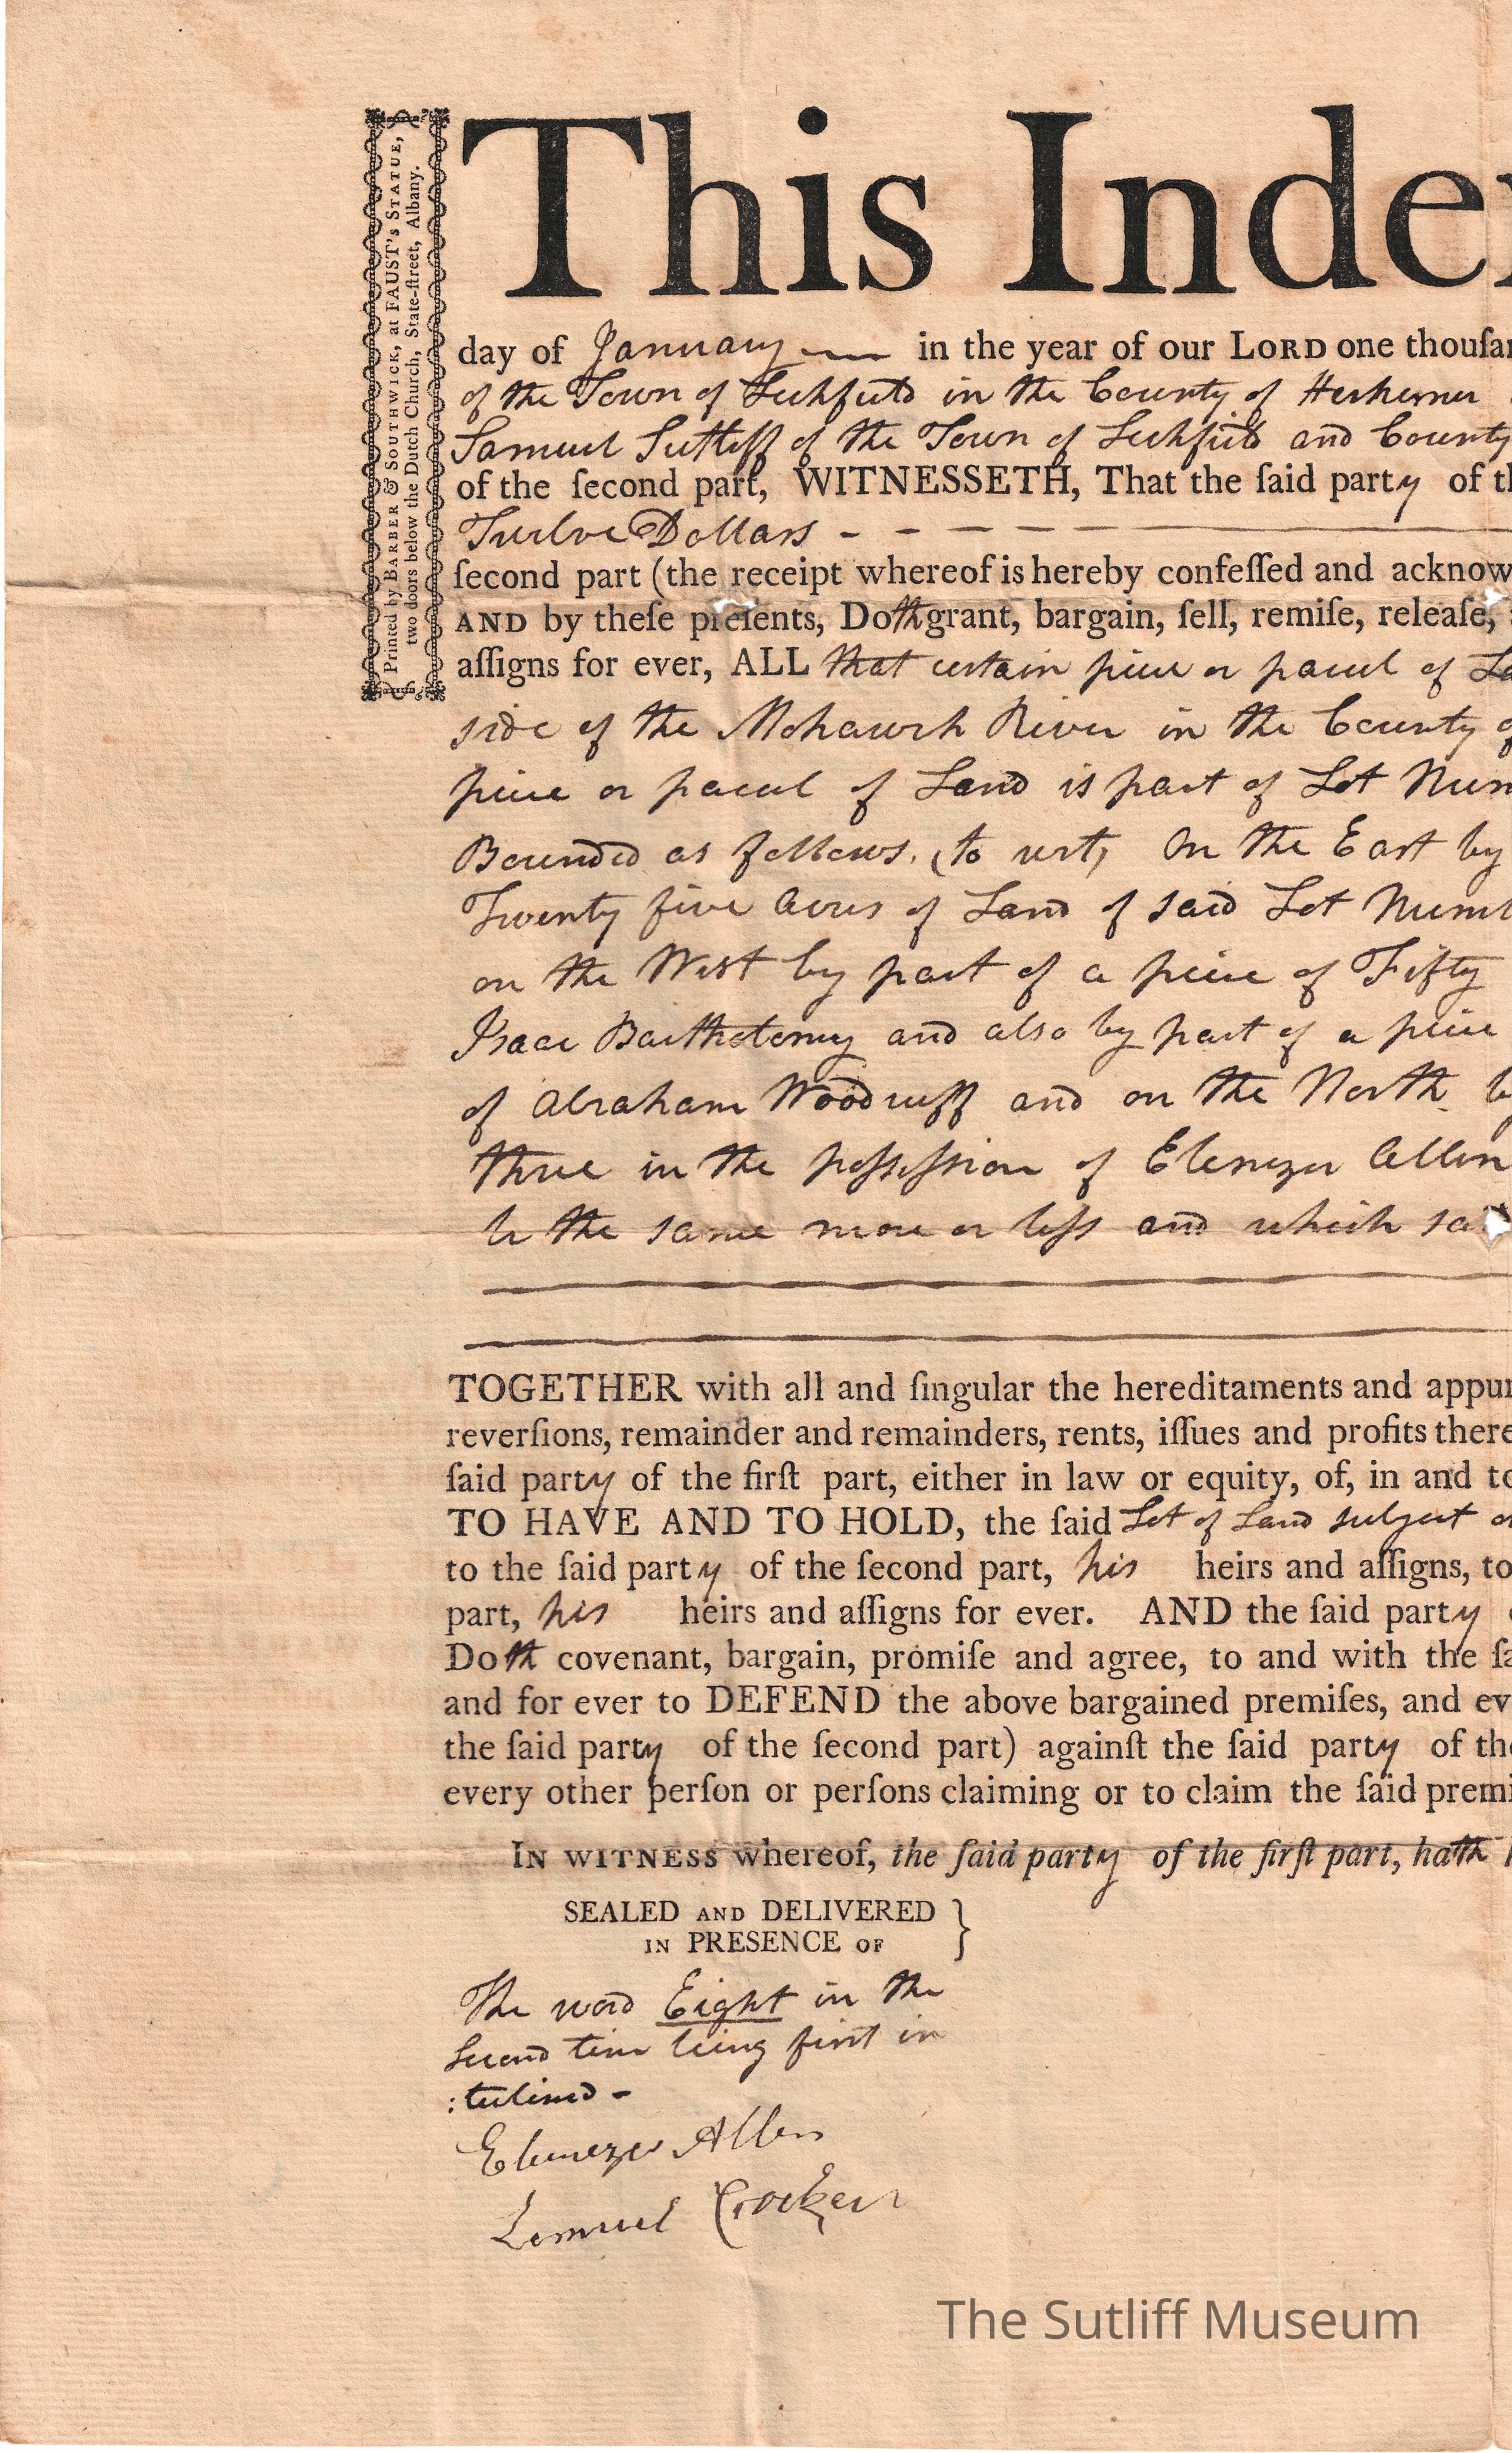 Printed by BARBER & SOUTHWICK, at FAUST's STATUE,
two doors below the Dutch Church, State-ſtreet, Albany.
This Inde
day of January in the year of our LORD one thouſa
of the Town of Litchfield in the County of Herkemer
Samuel Sutleff of the Town of Litchfield and County
of the ſecond part, WITNESSETH, That the ſaid party of t
Twelve Dollars - - - -
ſecond part (the receipt whereof is hereby confeſſed and acknow
AND by theſe preſents, Doth grant, bargain, ſell, remiſe, releaſe,
aſſigns for ever, ALL that certain piece or parcel of La
side of the Mohawk River in the County of
piece or parcel of Land is part of Lot Num
Bounded as follows. (to wit) On the East by
Twenty five Acres of Land of said Lot Numb
on the West by part of a piece of Fifty
Isaac Bartholomy and also by part of a piece
of Abraham Woodruff and on the North b
three in the poſseſsion of Ebenezer Allen
be the same more or leſs and which sa
TOGETHER with all and ſingular the hereditaments and appur
reverſions, remainder and remainders, rents, iſſues and profits there
ſaid party of the firſt part, either in law or equity, of, in and to
TO HAVE AND TO HOLD, the ſaid Lot of Land subject
to the ſaid party of the ſecond part, his heirs and aſſigns, to
part, his heirs and aſſigns for ever. AND the ſaid party
Doth covenant, bargain, promiſe and agree, to and with the ſa
and for ever to DEFEND the above bargained premiſes, and ev
the ſaid party of the ſecond part) againſt the ſaid party of the
every other perſon or perſons claiming or to claim the ſaid premi
IN WITNESS whereof, the ſaid party of the firſt part, hath
SEALED AND DELIVERED }
IN PRESENCE OF
The word Eight in the
Second line being first in
:terlined -
Ebenezer Allen
Lemuel Crocker
The Sutliff Museum